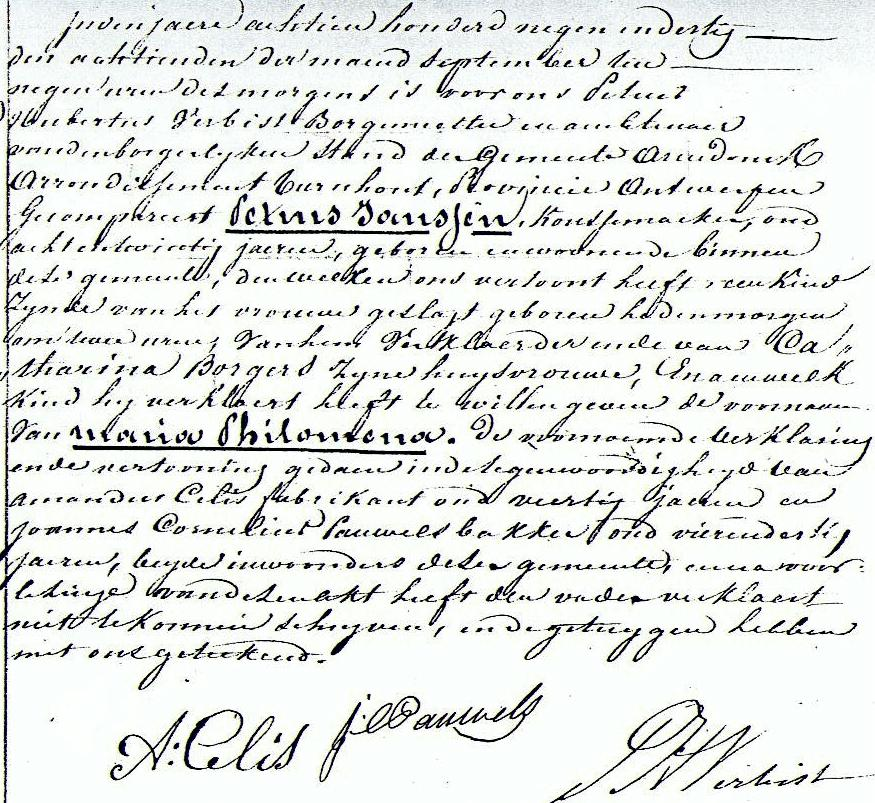 In een jaere achtien honderd negen endertig
den achtienden der maend September ten
negen uren des morgens is voor ons Petrus
Hubertus Verbist Borgemeester en ambtenaer
vanden borgelyken Stand der Gemeente Arendonck
Arrondissement Turnhout, Provincie Antwerpen
Gecompareert Petrus Janssen, Koussemaeker, oud
achtentwintig jaeren, geboren en woonende binnen
deze gemeente, den welken ons vertoont heeft een Kind
Zynde van het vrouwe geslagt geboren heden morgen
om twee uren, Van hem Verklaerder ende van Ca-
tharina Borgers Zyne huysvrouwe, En aen welk
Kind hy verklaert heeft te willen geven de voornaem
Van Maria Philomena. De voornoemde verklaring
ende vertooning gedaen in de tegenwoordigheyd van
Amandus Celis fabrikant oud veertig jaeren en
Joannes Cornelius Pauwels bakker oud vierendertig
jaeren, beyde inwoonders dezer gemeente, en na voor-
lezinge van dezen akt heeft den vader verklaert
niet te konnen schryven, ende getuygen hebben
met ons geteekend.
A: Celis J: C Pauwels
PH Verbist